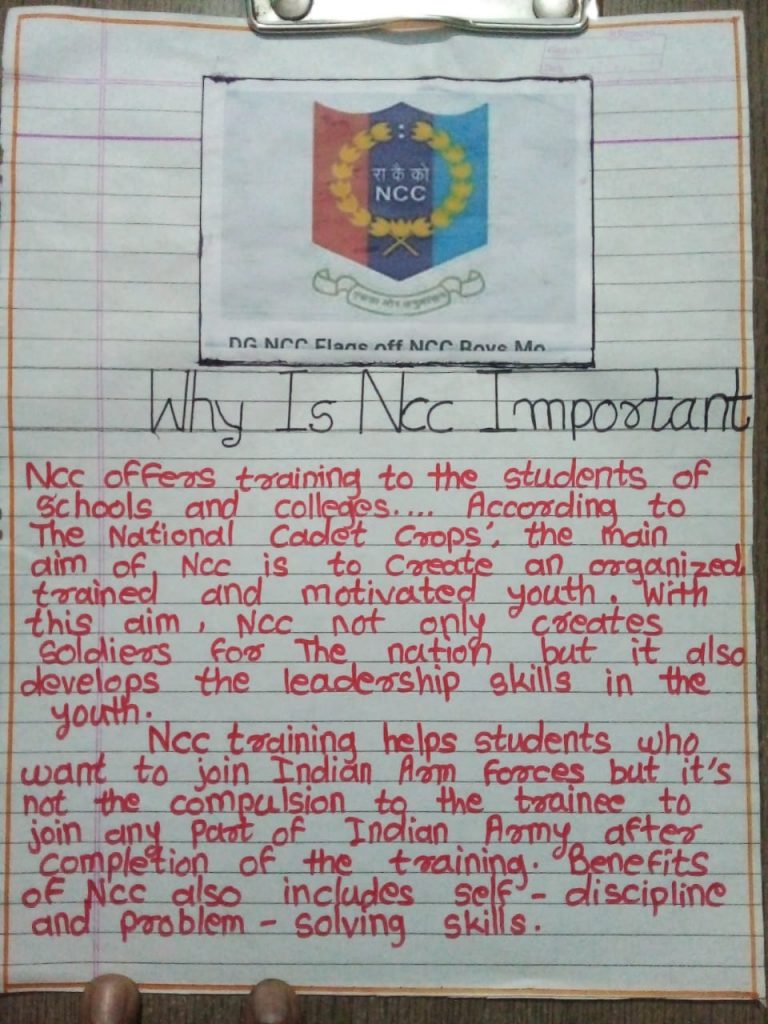 रा कै को
NCC
एकता और अनुशासन
DG NCC Flags off NCC Boys Mo
Why Is Ncc Important
Ncc offers training to the students of
schools and colleges.... According to
The National Cadet Crops', the main
aim of Ncc is to create an organized
trained and motivated youth. With
this aim, Ncc not only creates
soldiers for The nation but it also
develops the leadership skills in the
youth.
Ncc training helps students who
want to join Indian Arm forces but it's
not the compulsion to the trainee to
join any part of Indian Army after
completion of the training. Benefits
of Ncc also includes self - discipline
and problem - solving skills.